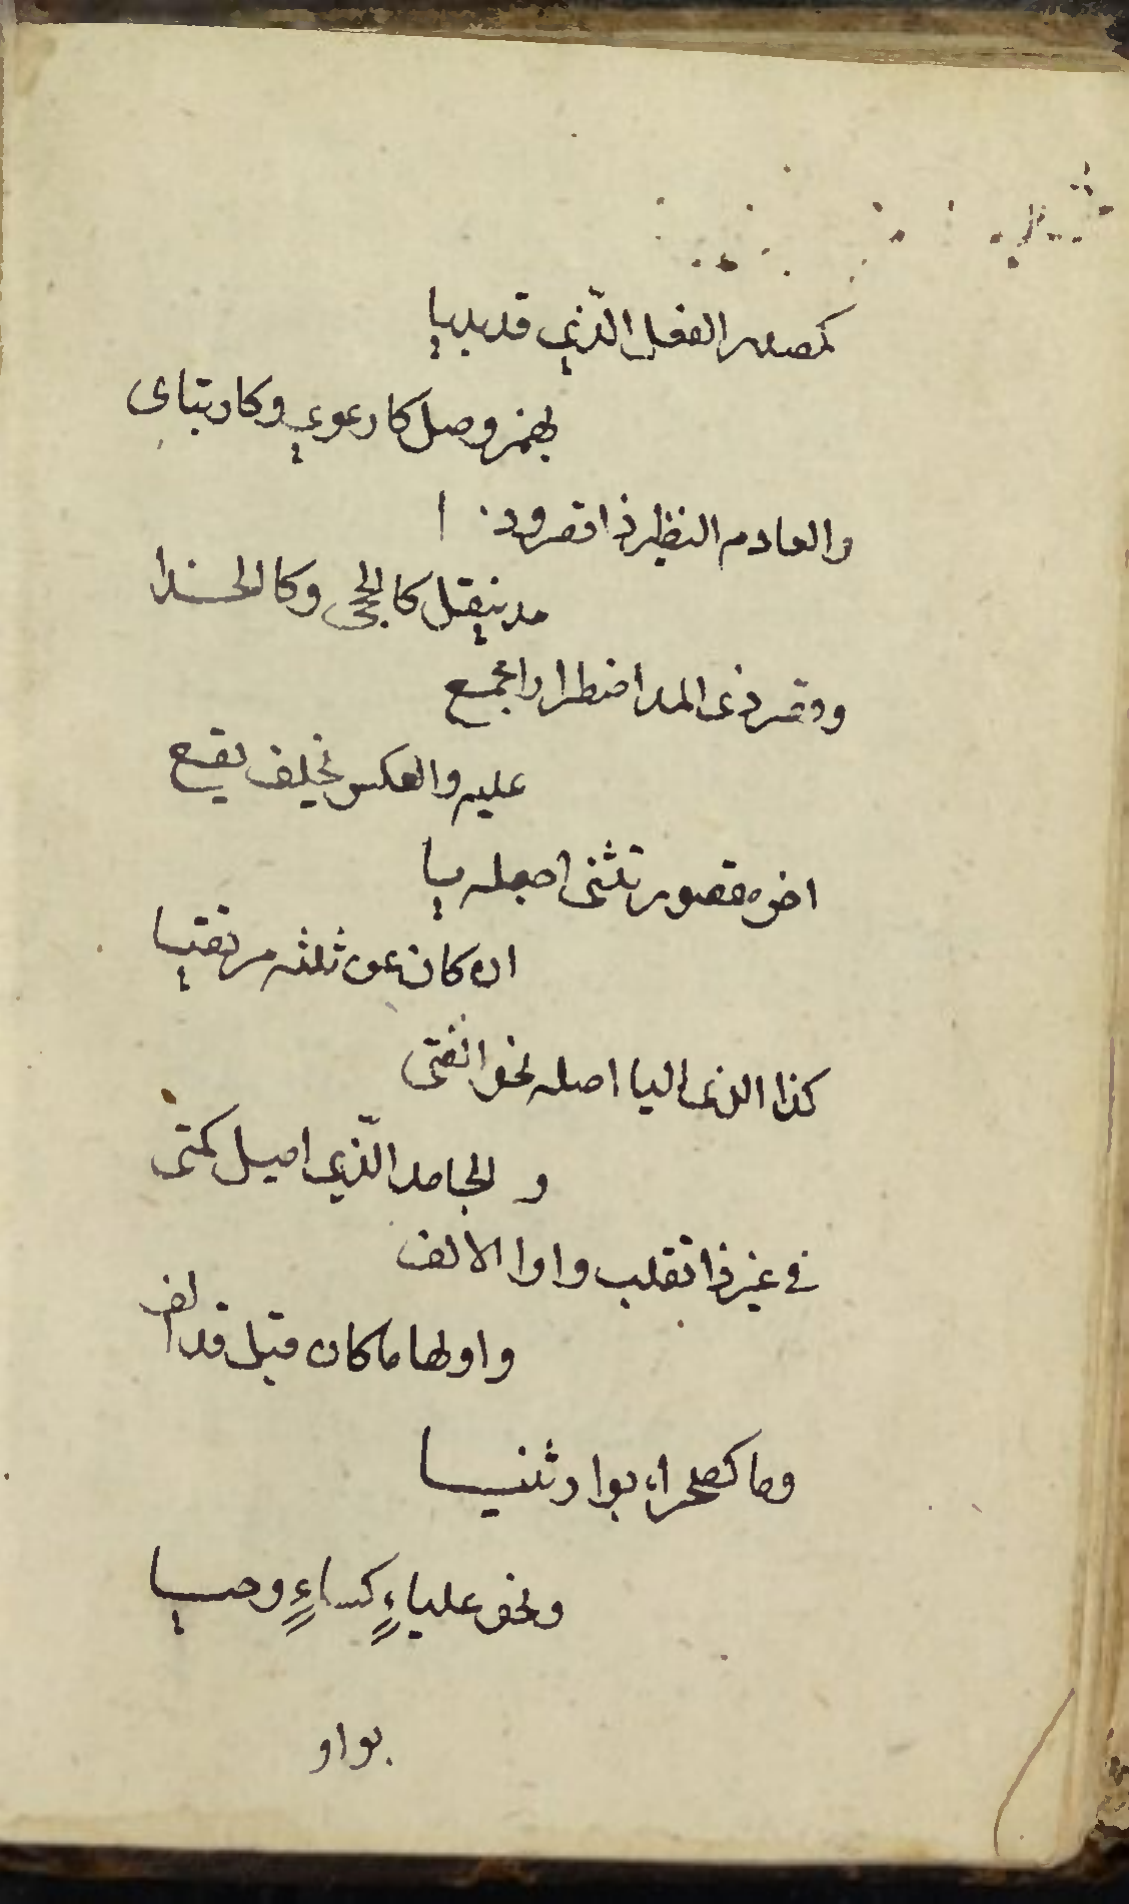 كمصدر الفعل الّذي قد بديا
بهمز وصل كارعوي وكارتباى
والعادم النظير ذا قصر وذ ا
مد بنقل كالحجى وكالحذا
وقصر ذى المد اضطرارا مجمع
عليه والعكس بخلف يقع
اخر مقصور تثنى اجعله يا
ان كان عن ثلثه مرتقيا
كذا الذى اليا اصله نحو الفتى
و الجامد الّذي اميل كمتى
فى غير ذا تقلب واوا الالف
واولها ما كان قبل قد الف
وما كصحراء بواو ثنيا
ونحو علياءٍ كساءٍ وحيا
بواو